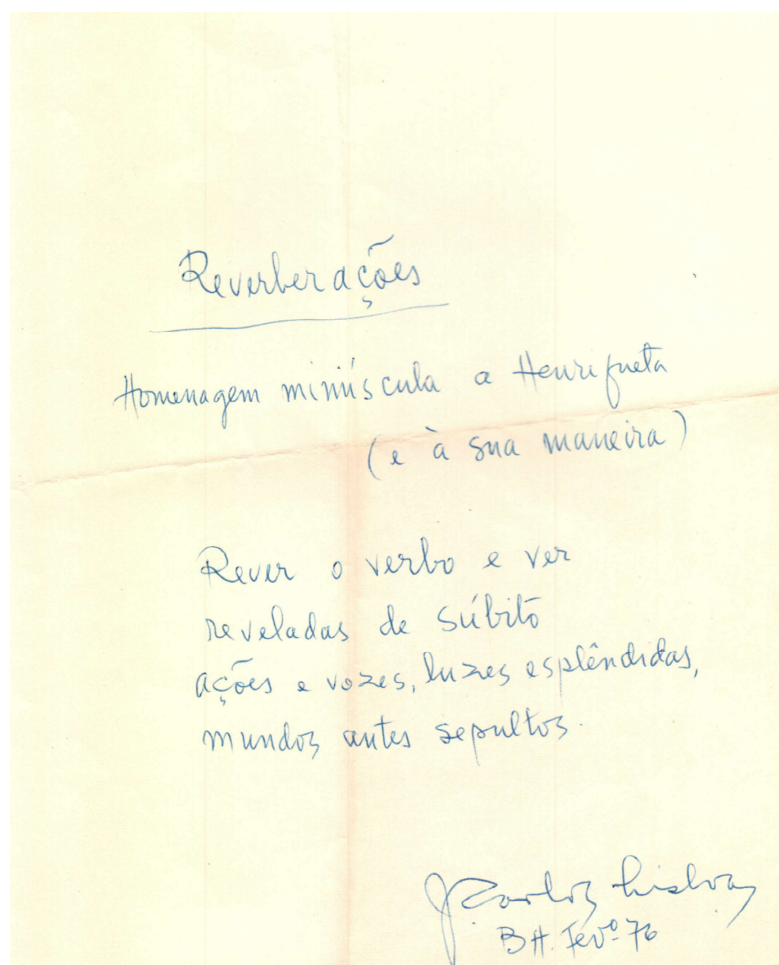 Reverberações
Homenagem minúscula a Henriqueta
(e à sua maneira)
Rever o verbo e ver
reveladas de súbito
ações e vozes, luzes esplêndidas,
mundos antes sepultos.
J Carlos Lisboa
BH. Fevº 76